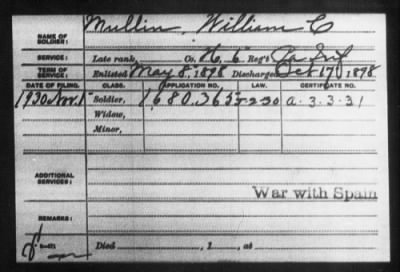 NAME OF SOLDIER: Mullin, William C
SERVICE: Late rank, Co. H, 6" Reg't Pa Inf
TERM OF SERVICE: Enlisted May 8", 1898 Discharged Oct 17, 1898
DATE OF FILING. CLASS. APPLICATION NO. LAW. CERTIFICATE NO.
1930 Nov. 1 Soldier, 1680363 5-2-30 a-3-3-31
Widow,
Minor,
ADDITIONAL SERVICES:
War with Spain
REMARKS:
Died , 1 , at